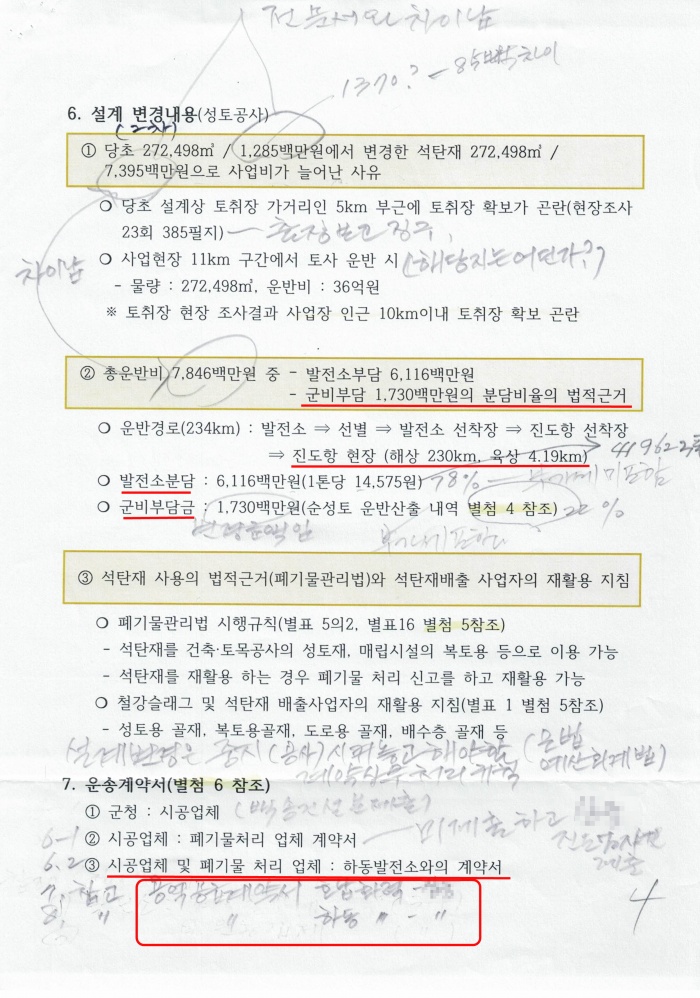 전 문서와 차이남
1370? - 8억 차이
6. 설계 변경내용(성토공사)
(2차)
① 당초 272,498㎥ / 1,285백만원에서 변경한 석탄재 272,498㎥ /
7,395백만원으로 사업비가 늘어난 사유
❍ 당초 설계상 토취장 가거리인 5km 부근에 토취장 확보가 곤란(현장조사
23회 385필지)
❍ 사업현장 11km 구간에서 토사 운반 시 (해당지는 어딘가?)
차이남
- 물량 : 272,498㎥, 운반비 : 36억원
※ 토취장 현장 조사결과 사업장 인근 10km이내 토취장 확보 곤란
② 총운반비 7,846백만원 중 - 발전소부담 6,116백만원
- 군비부담 1,730백만원의 분담비율의 법적근거
❍ 운반경로(234km) : 발전소 ⇒ 선별 ⇒ 발전소 선착장 ⇒ 진도항 선착장
⇒ 진도항 현장 (해상 230km, 육상 4.19km)
❍ 발전소분담 : 6,116백만원(1톤당 14,575원) 78% - 부가세 미포함
❍ 군비부담금 : 1,730백만원(순성토 운반산출 내역 별첨 4 참조) 22%
③ 석탄재 사용의 법적근거(폐기물관리법)와 석탄재배출 사업자의 재활용 지침
❍ 폐기물관리법 시행규칙(별표 5의2, 별표16 별첨 5참조)
- 석탄재를 건축·토목공사의 성토재, 매립시설의 복토용 등으로 이용 가능
- 석탄재를 재활용 하는 경우 폐기물 처리 신고를 하고 재활용 가능
❍ 철강슬래그 및 석탄재 배출사업자의 재활용 지침(별표 1 별첨 5참조)
- 성토용 골재, 복토용골재, 도로용 골재, 배수층 골재 등
설계변경은 중지(공사)시켜놓고 해야함
7. 운송계약서(별첨 6 참조)
① 군청 : 시공업체
6-1 ② 시공업체 : 폐기물처리 업체 계약서 - 미제출하고
6.2 ③ 시공업체 및 폐기물 처리 업체 : 하동발전소와의 계약서
7, 참고
8, 〃 〃 하동 〃 - 〃
4